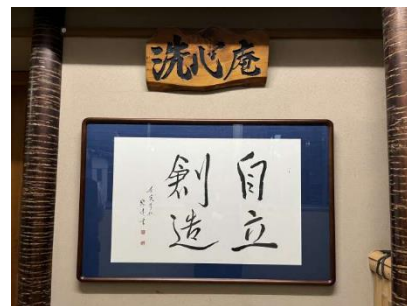 洗心庵
自立
創造